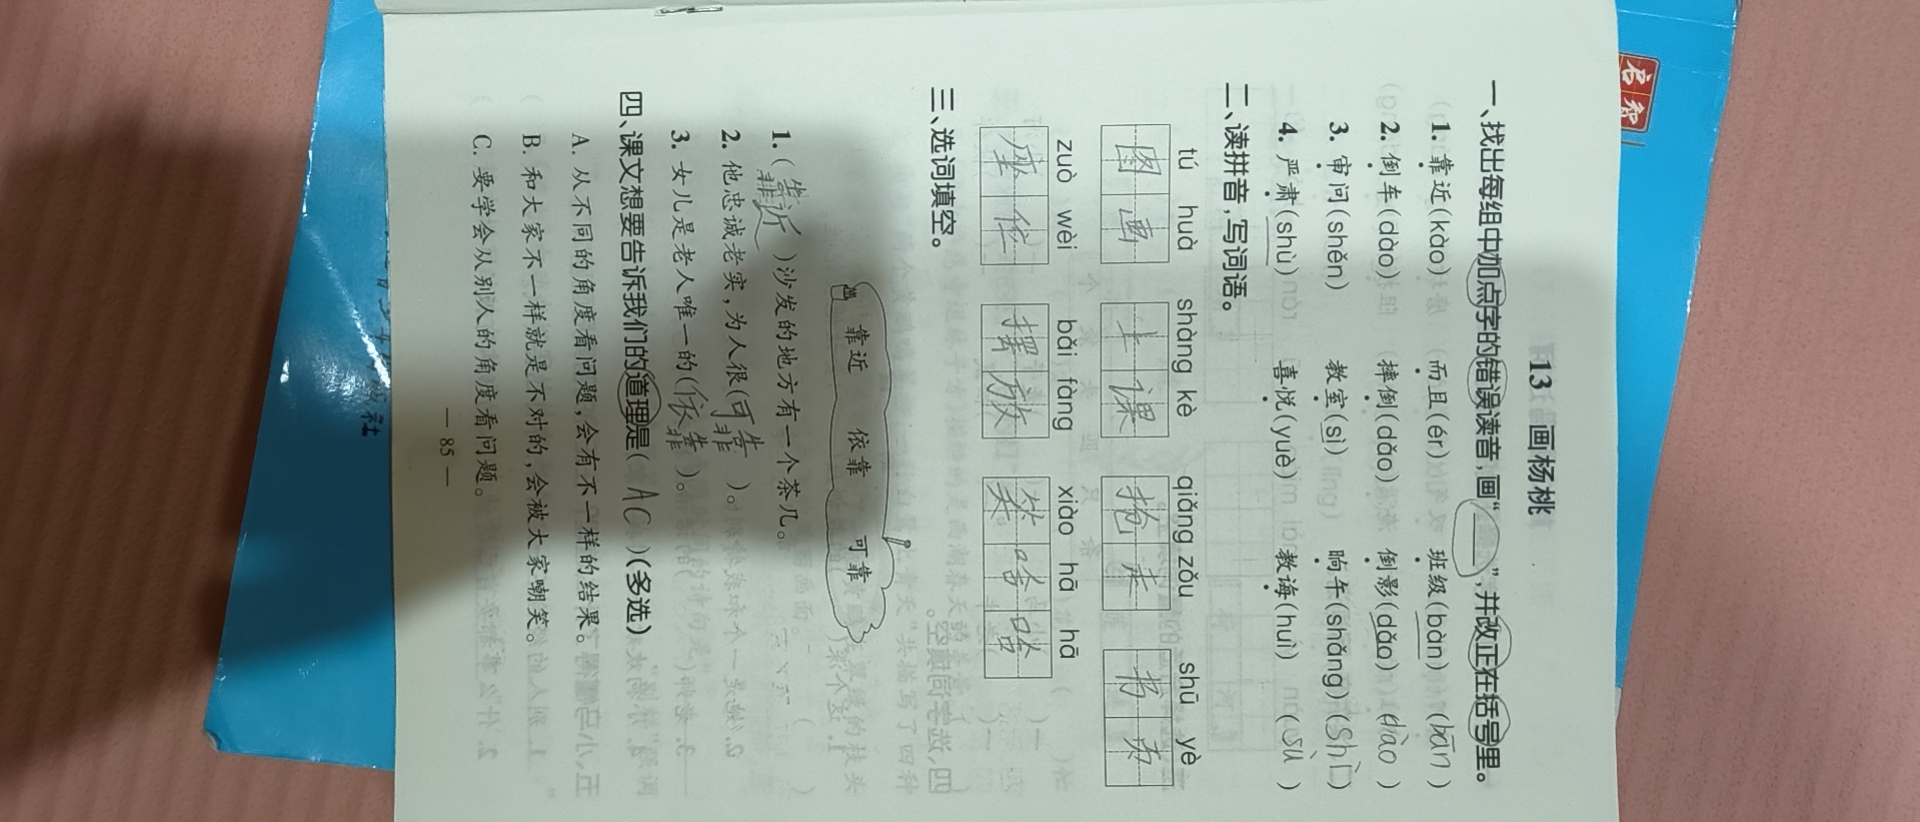 13 画杨桃
一、找出每组中加点字的错误读音,画“＿＿”,并改正在括号里。
1. 靠近(kào) 而且(ér) 班级(bàn) (bān)
2. 倒车(dào) 摔倒(dǎo) 倒影(dǎo) (dào)
3. 审问(shěn) 教室(sì) 晌午(shǎng) (shì)
4. 严肃(shù) 喜悦(yuè) 教诲(huì) (sù)
二、读拼音,写词语。
tú huà shàng kè qiǎng zǒu shū yè
图画 上课 抢走 书页
zuò wèi bǎi fàng xiào hā hā
座位 摆放 笑哈哈
三、选词填空。
靠近 依靠 可靠
1. (靠近)沙发的地方有一个茶几。
2. 他忠诚老实,为人很(可靠)。
3. 女儿是老人唯一的(依靠)。
四、课文想要告诉我们的道理是(AC)(多选)
A. 从不同的角度看问题,会有不一样的结果。
B. 和大家不一样就是不对的,会被大家嘲笑。
C. 要学会从别人的角度看问题。
— 85 —